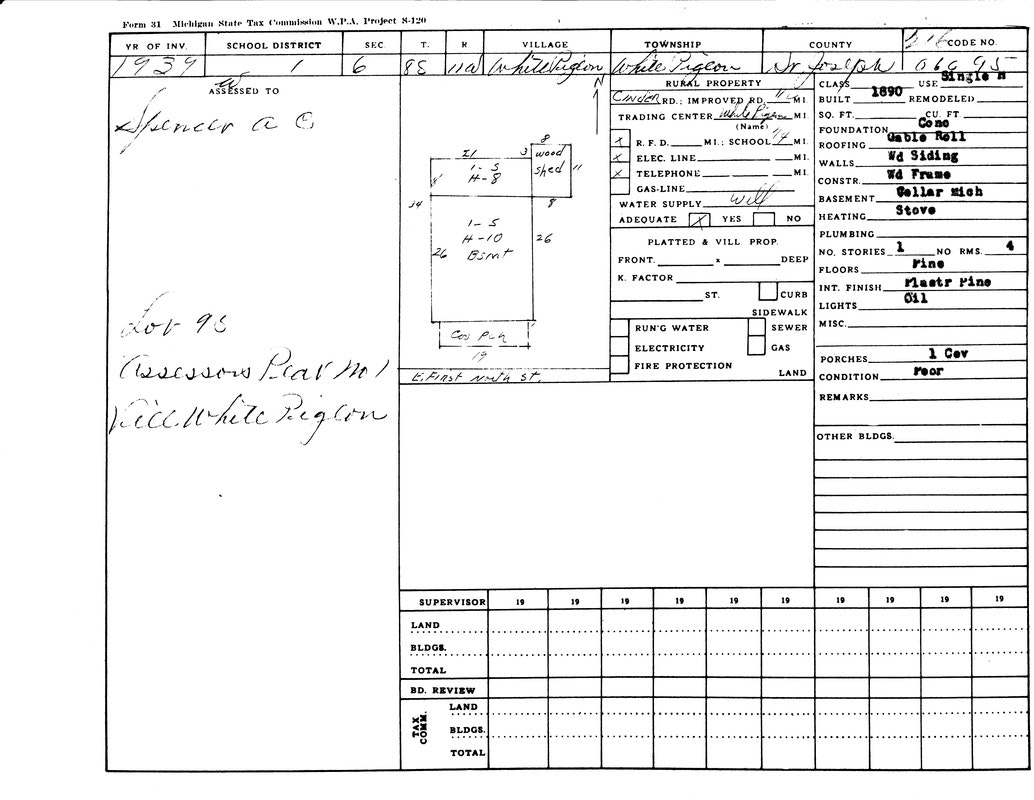 Form 31 Michigan State Tax Commission W.P.A. Project S-120
YR OF INV. SCHOOL DISTRICT SEC. T. R VILLAGE TOWNSHIP COUNTY CODE NO.
1939 1 6 8S 11W White Pigeon White Pigeon St Joseph 066 95
ASSESSED TO
Spencer A C
Lot 95
Assessors Plat No 1
Vill. White Pigeon
N
21
3
8
wood
shed
11
8
1-S
H-8
8'
34
1-S
H-10
Bsmt
26
26
Cov Pch
19
E. First North St.
RURAL PROPERTY
Cinder RD.; IMPROVED RD. MI.
TRADING CENTER White Pigeon MI.
(Name)
X R. F. D. MI.; SCHOOL 1/4 MI.
X ELEC. LINE MI.
X TELEPHONE MI.
GAS-LINE
WATER SUPPLY Well
ADEQUATE X YES NO
PLATTED & VILL. PROP.
FRONT. x DEEP
K. FACTOR
ST. CURB
SIDEWALK
RUN'G WATER SEWER
ELECTRICITY GAS
FIRE PROTECTION
LAND
CLASS USE Single H
BUILT 1890 REMODELED
SQ. FT. CU. FT.
FOUNDATION Conc
ROOFING Gable Roll
WALLS Wd Siding
CONSTR. Wd Frame
BASEMENT Cellar Mich
HEATING Stove
PLUMBING
NO. STORIES 1 NO RMS. 4
FLOORS Pine
INT. FINISH Plastr Pine
LIGHTS Oil
MISC.
PORCHES 1 Cov
CONDITION Poor
REMARKS
OTHER BLDGS.
SUPERVISOR 19 19 19 19 19 19 19 19 19 19
LAND
BLDGS.
TOTAL
BD. REVIEW
TAX COMM.
LAND
BLDGS.
TOTAL